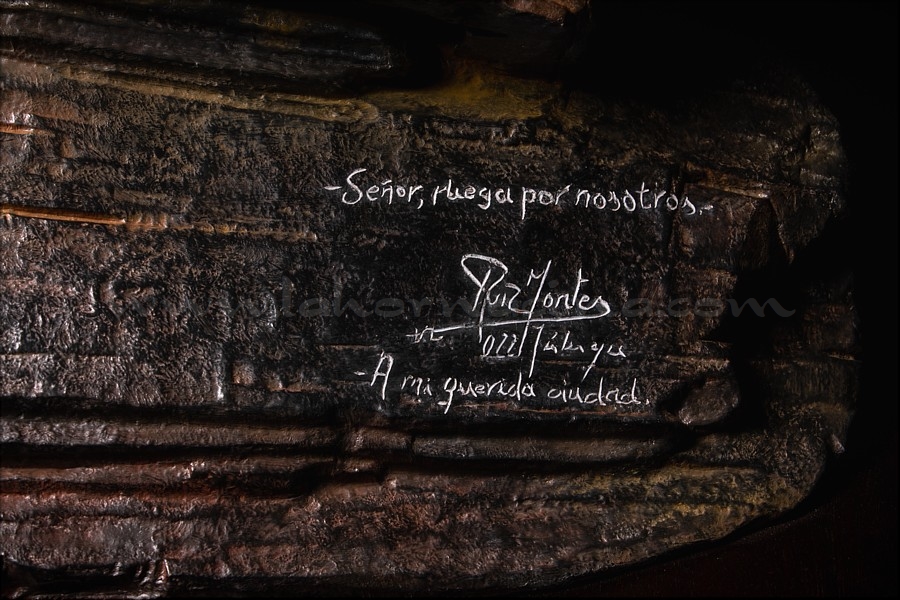 -Señor, ruega por nosotros.-
Ruiz Montes
Málaga
-A mi querida ciudad.